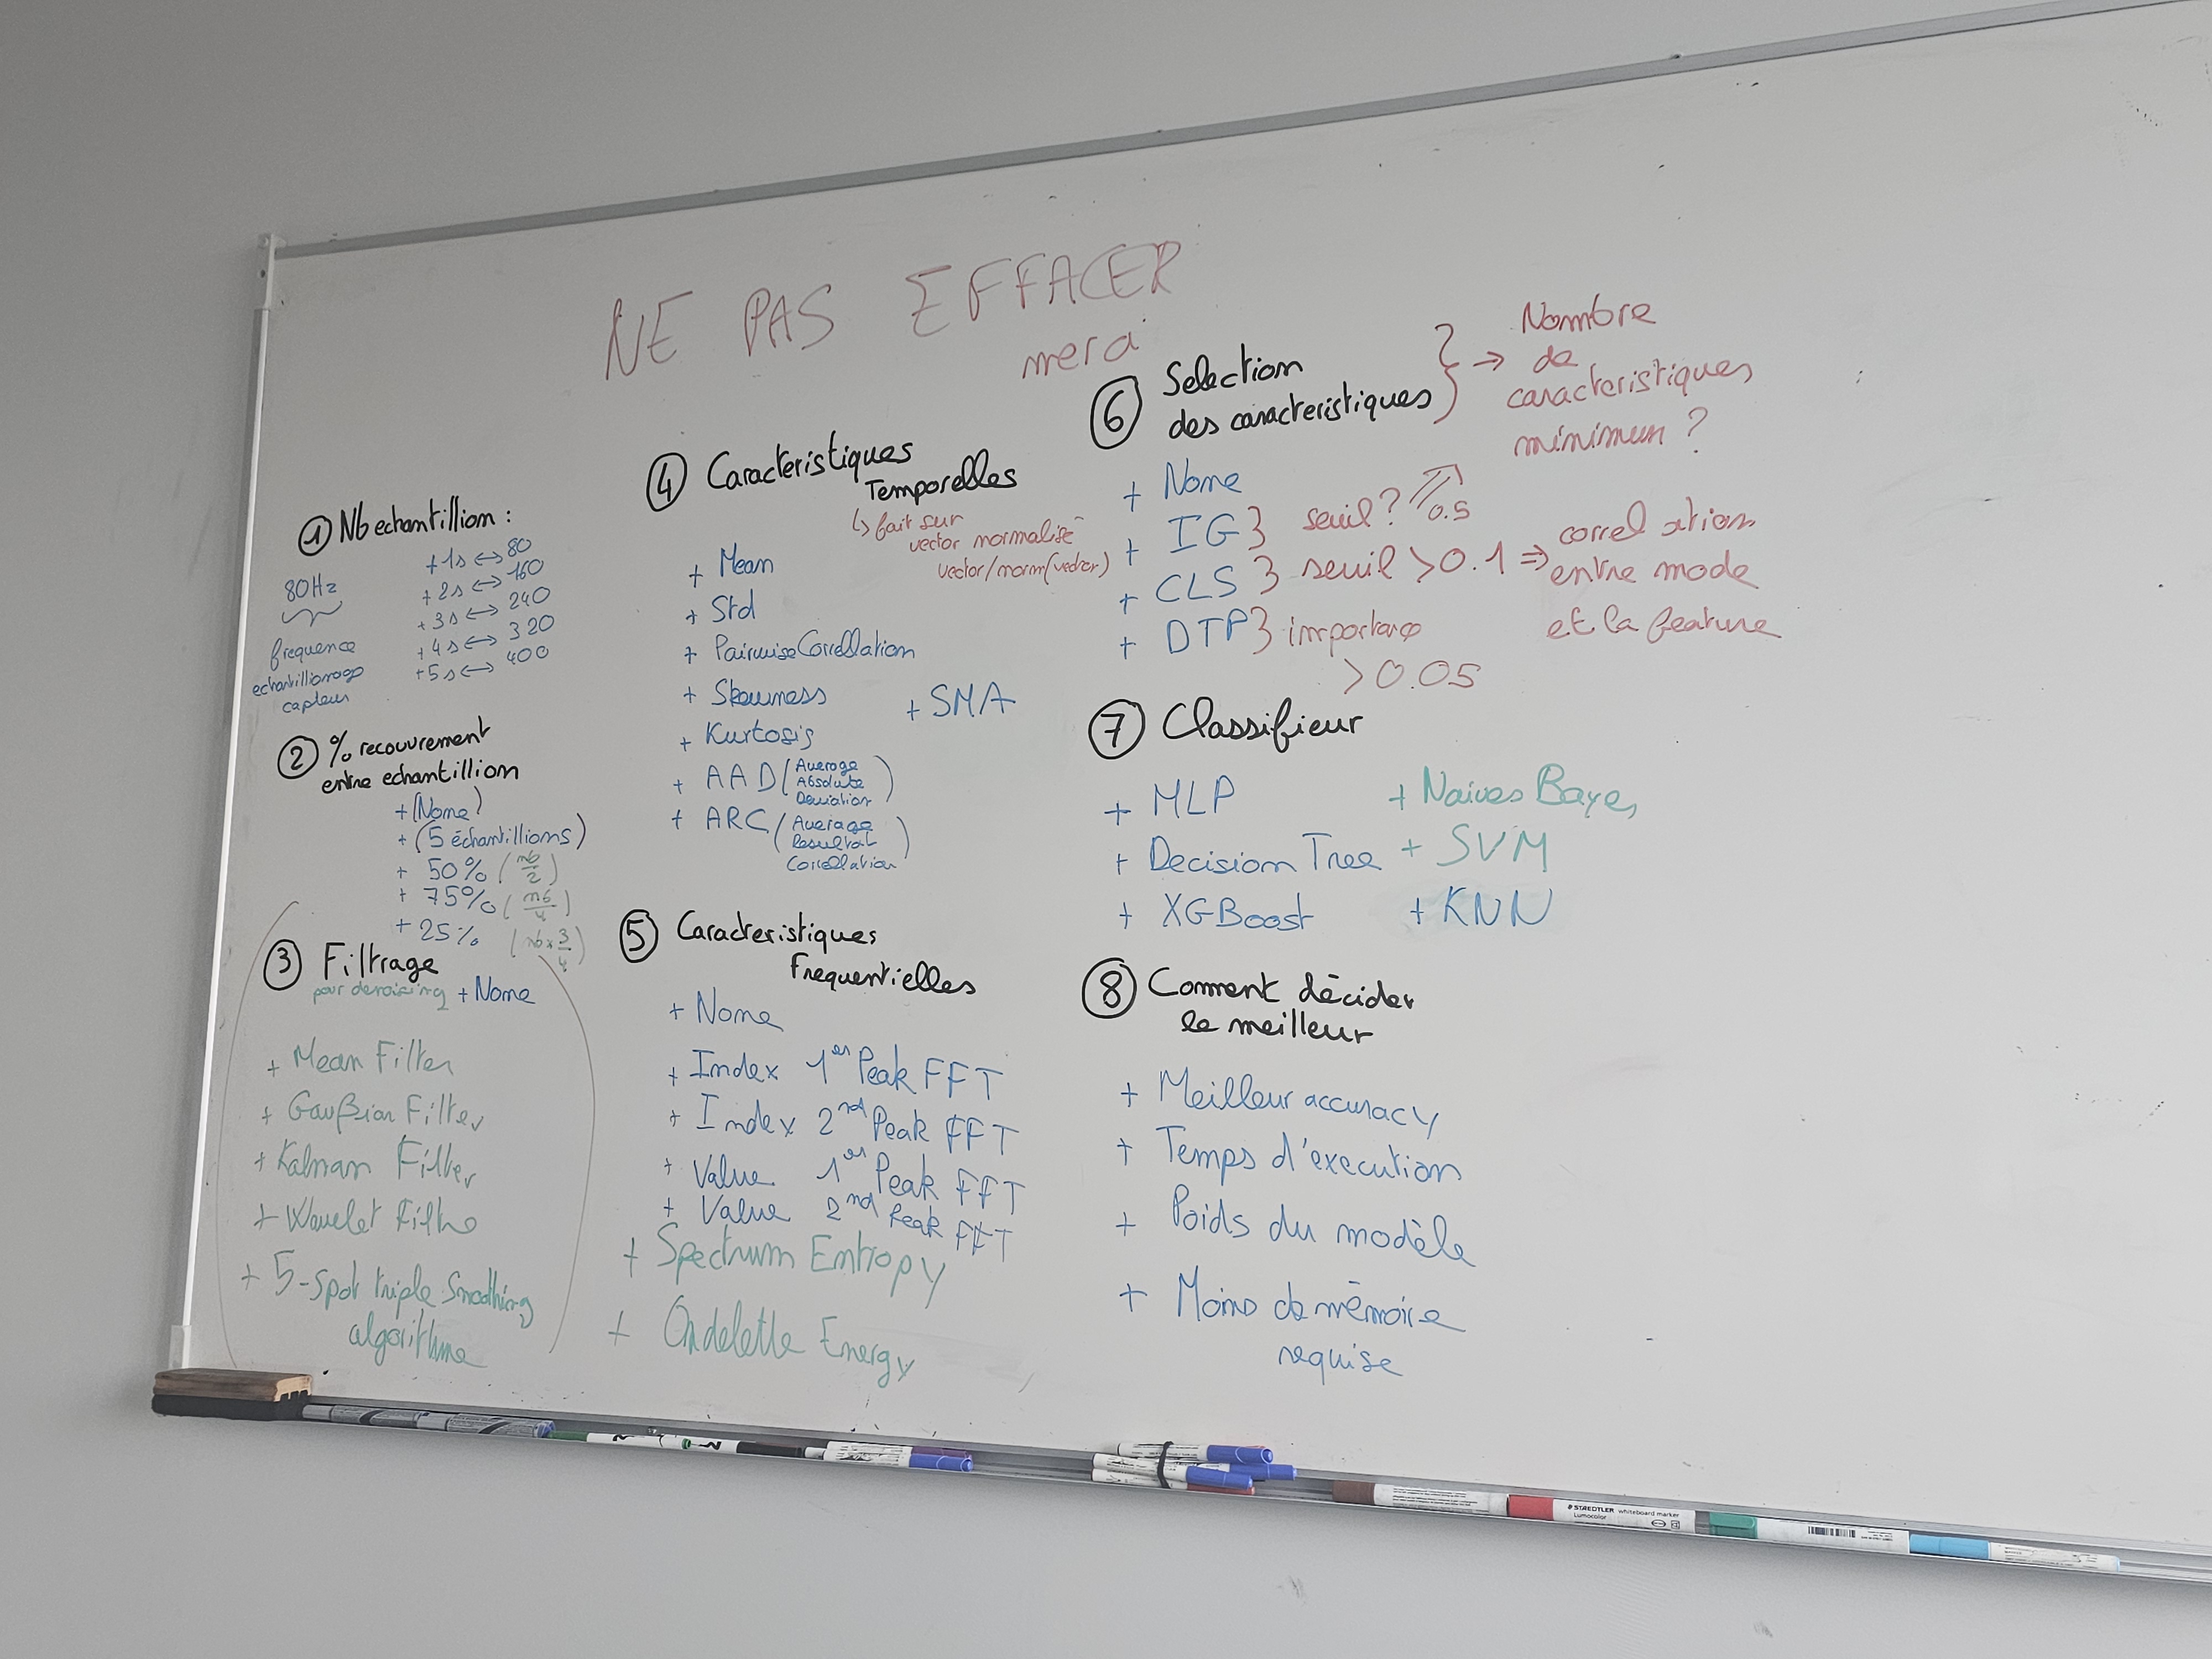 NE PAS EFFACER
merci
① Nb echantillion :
80Hz
frequence
echantillionage
capteur
+ 1s ↔ 80
+ 2s ↔ 160
+ 3s ↔ 240
+ 4s ↔ 320
+ 5s ↔ 400
② % recouvrement
entre echantillion
+ (None)
+ (5 échantillions)
+ 50% (nb/2)
+ 75% (nb/4)
+ 25% (nb×3/4)
③ Filtrage
pour denoising + None
+ Mean Filter
+ Gaußian Filter
+ Kalman Filter
+ Wavelet Filtre
+ 5-spot triple Smoothing
algorithme
④ Caracteristiques
Temporelles
↳ fait sur
vector normalisé
vector/norm(vector)
+ Mean
+ Std
+ PairwiseCorrellation
+ Skewness + SMA
+ Kurtosis
+ AAD (Average
Absolute
Deviation)
+ ARC (Average
Resultat
Correllation)
⑤ Caracteristiques
Frequentielles
+ None
+ Index 1er Peak FFT
+ Index 2nd Peak FFT
+ Value 1er Peak FFT
+ Value 2nd Peak FFT
+ Spectrum Entropy
+ Ondelette Energy
⑥ Selection
des caracteristiques } ⇒ Nombre
de
caracteristiques
minimum ?
+ None
+ IG } seuil ? 0.5
+ CLS } seuil > 0.1 ⇒ correlation
entre mode
et la feature
+ DTP } importance
> 0.05
⑦ Classifieur
+ MLP + Naives Bayes
+ Decision Tree + SVM
+ XGBoost + KNN
⑧ Comment décider
le meilleur
+ Meilleur accuracy
+ Temps d'execution
+ Poids du modèle
+ Moins de mémoire
requise
STAEDTLER whiteboard marker
Lumocolor